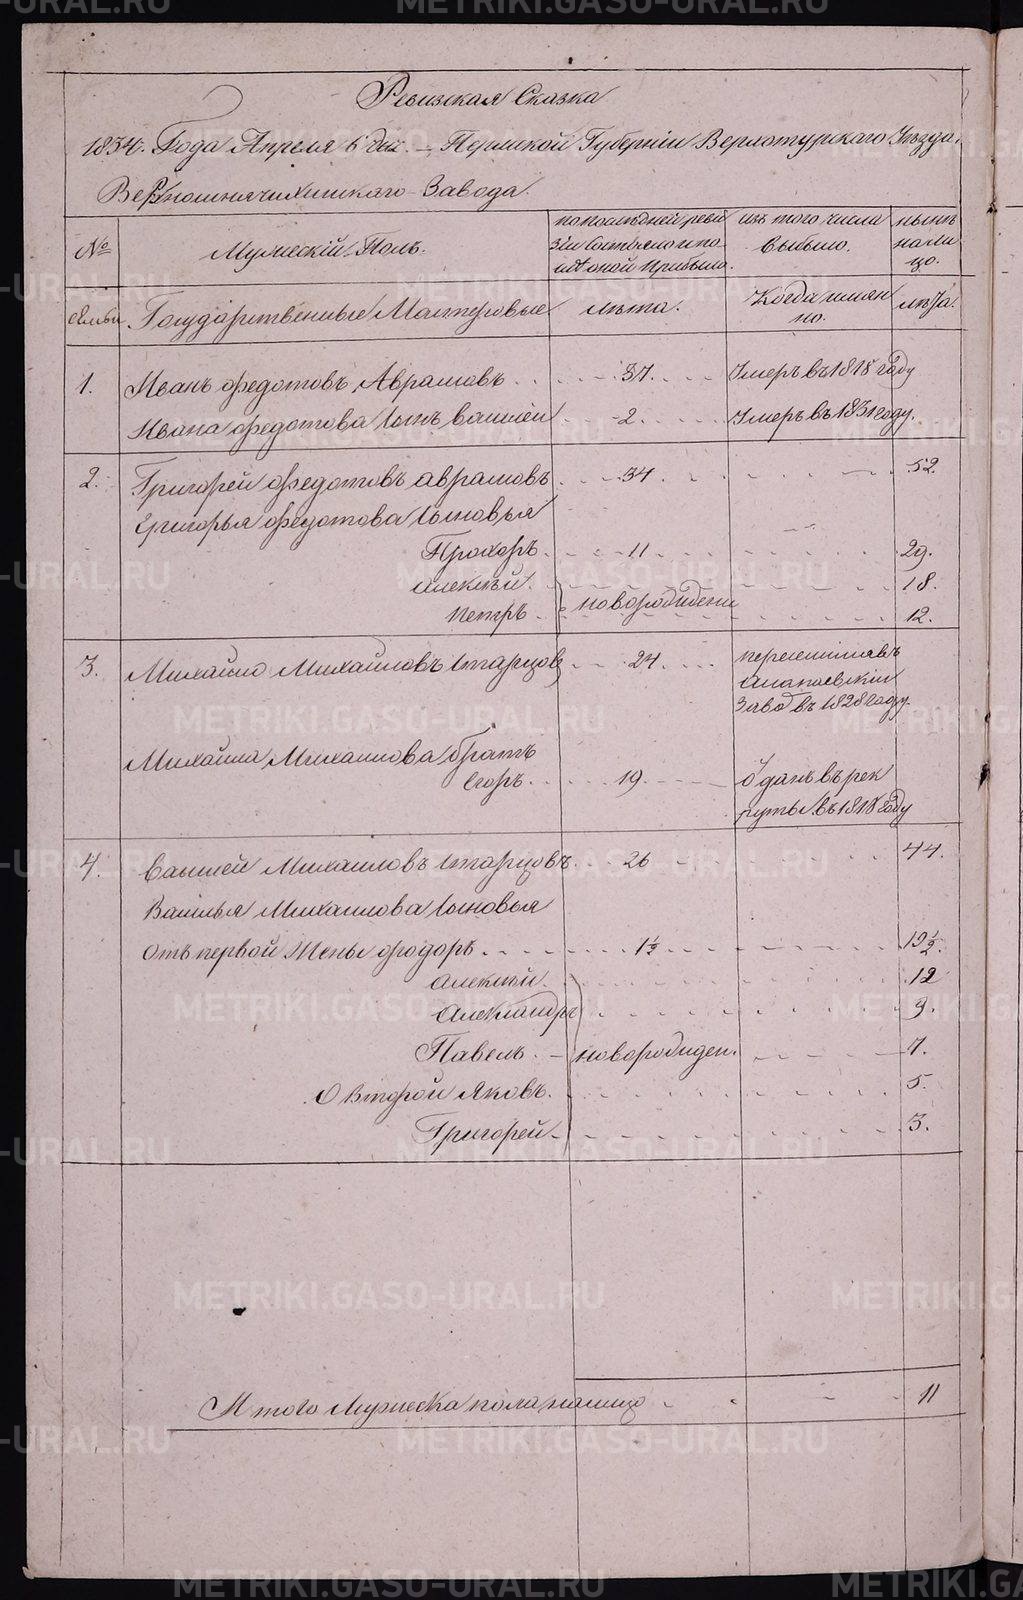 Ревизская Сказка
1834. Года Апреля 6 дня. – Пермской Губерніи Верхотурскаго Уѣзда,
Верхнесинячихинскаго Завода.
№ Мужескій Полъ. по последней ревизіи Состояло и после оной прибыло. изъ того числа выбыло. нынѣ на лицо.
семьи Государственные Мастеровые лѣта. Когда имянно. лѣта.
1. Иванъ Федотовъ Аврамовъ 37. Умеръ въ 1818 году
Ивана Федотова Сынъ Василей 2. Умеръ въ 1831 году.
2. Григорей Федотовъ Аврамовъ 34. 52.
Григорья Федотова Сыновья
Прохоръ. 11. 29.
Алексѣй. 18.
новорожден
Петръ. 12.
3. Михайло Михайловъ Старцовъ 24. переселился въ
Алапаевскій
Завод въ 1828 году.
Михайла Михайлова братъ
Егоръ. 19. Отданъ в рек
руты въ 1818 году
4. Василей Михайловъ Старцовъ. 26 44.
Василья Михайлова Сыновья
отъ первой Жены Федоръ. 1½ 19½.
Алексѣй. 12
Александръ 9.
Павелъ. новорожден. 7.
О Второй Яковъ. 5.
Григорей 3.
Итого Мужеска пола налицо 11
METRIKI.GASO-URAL.RU